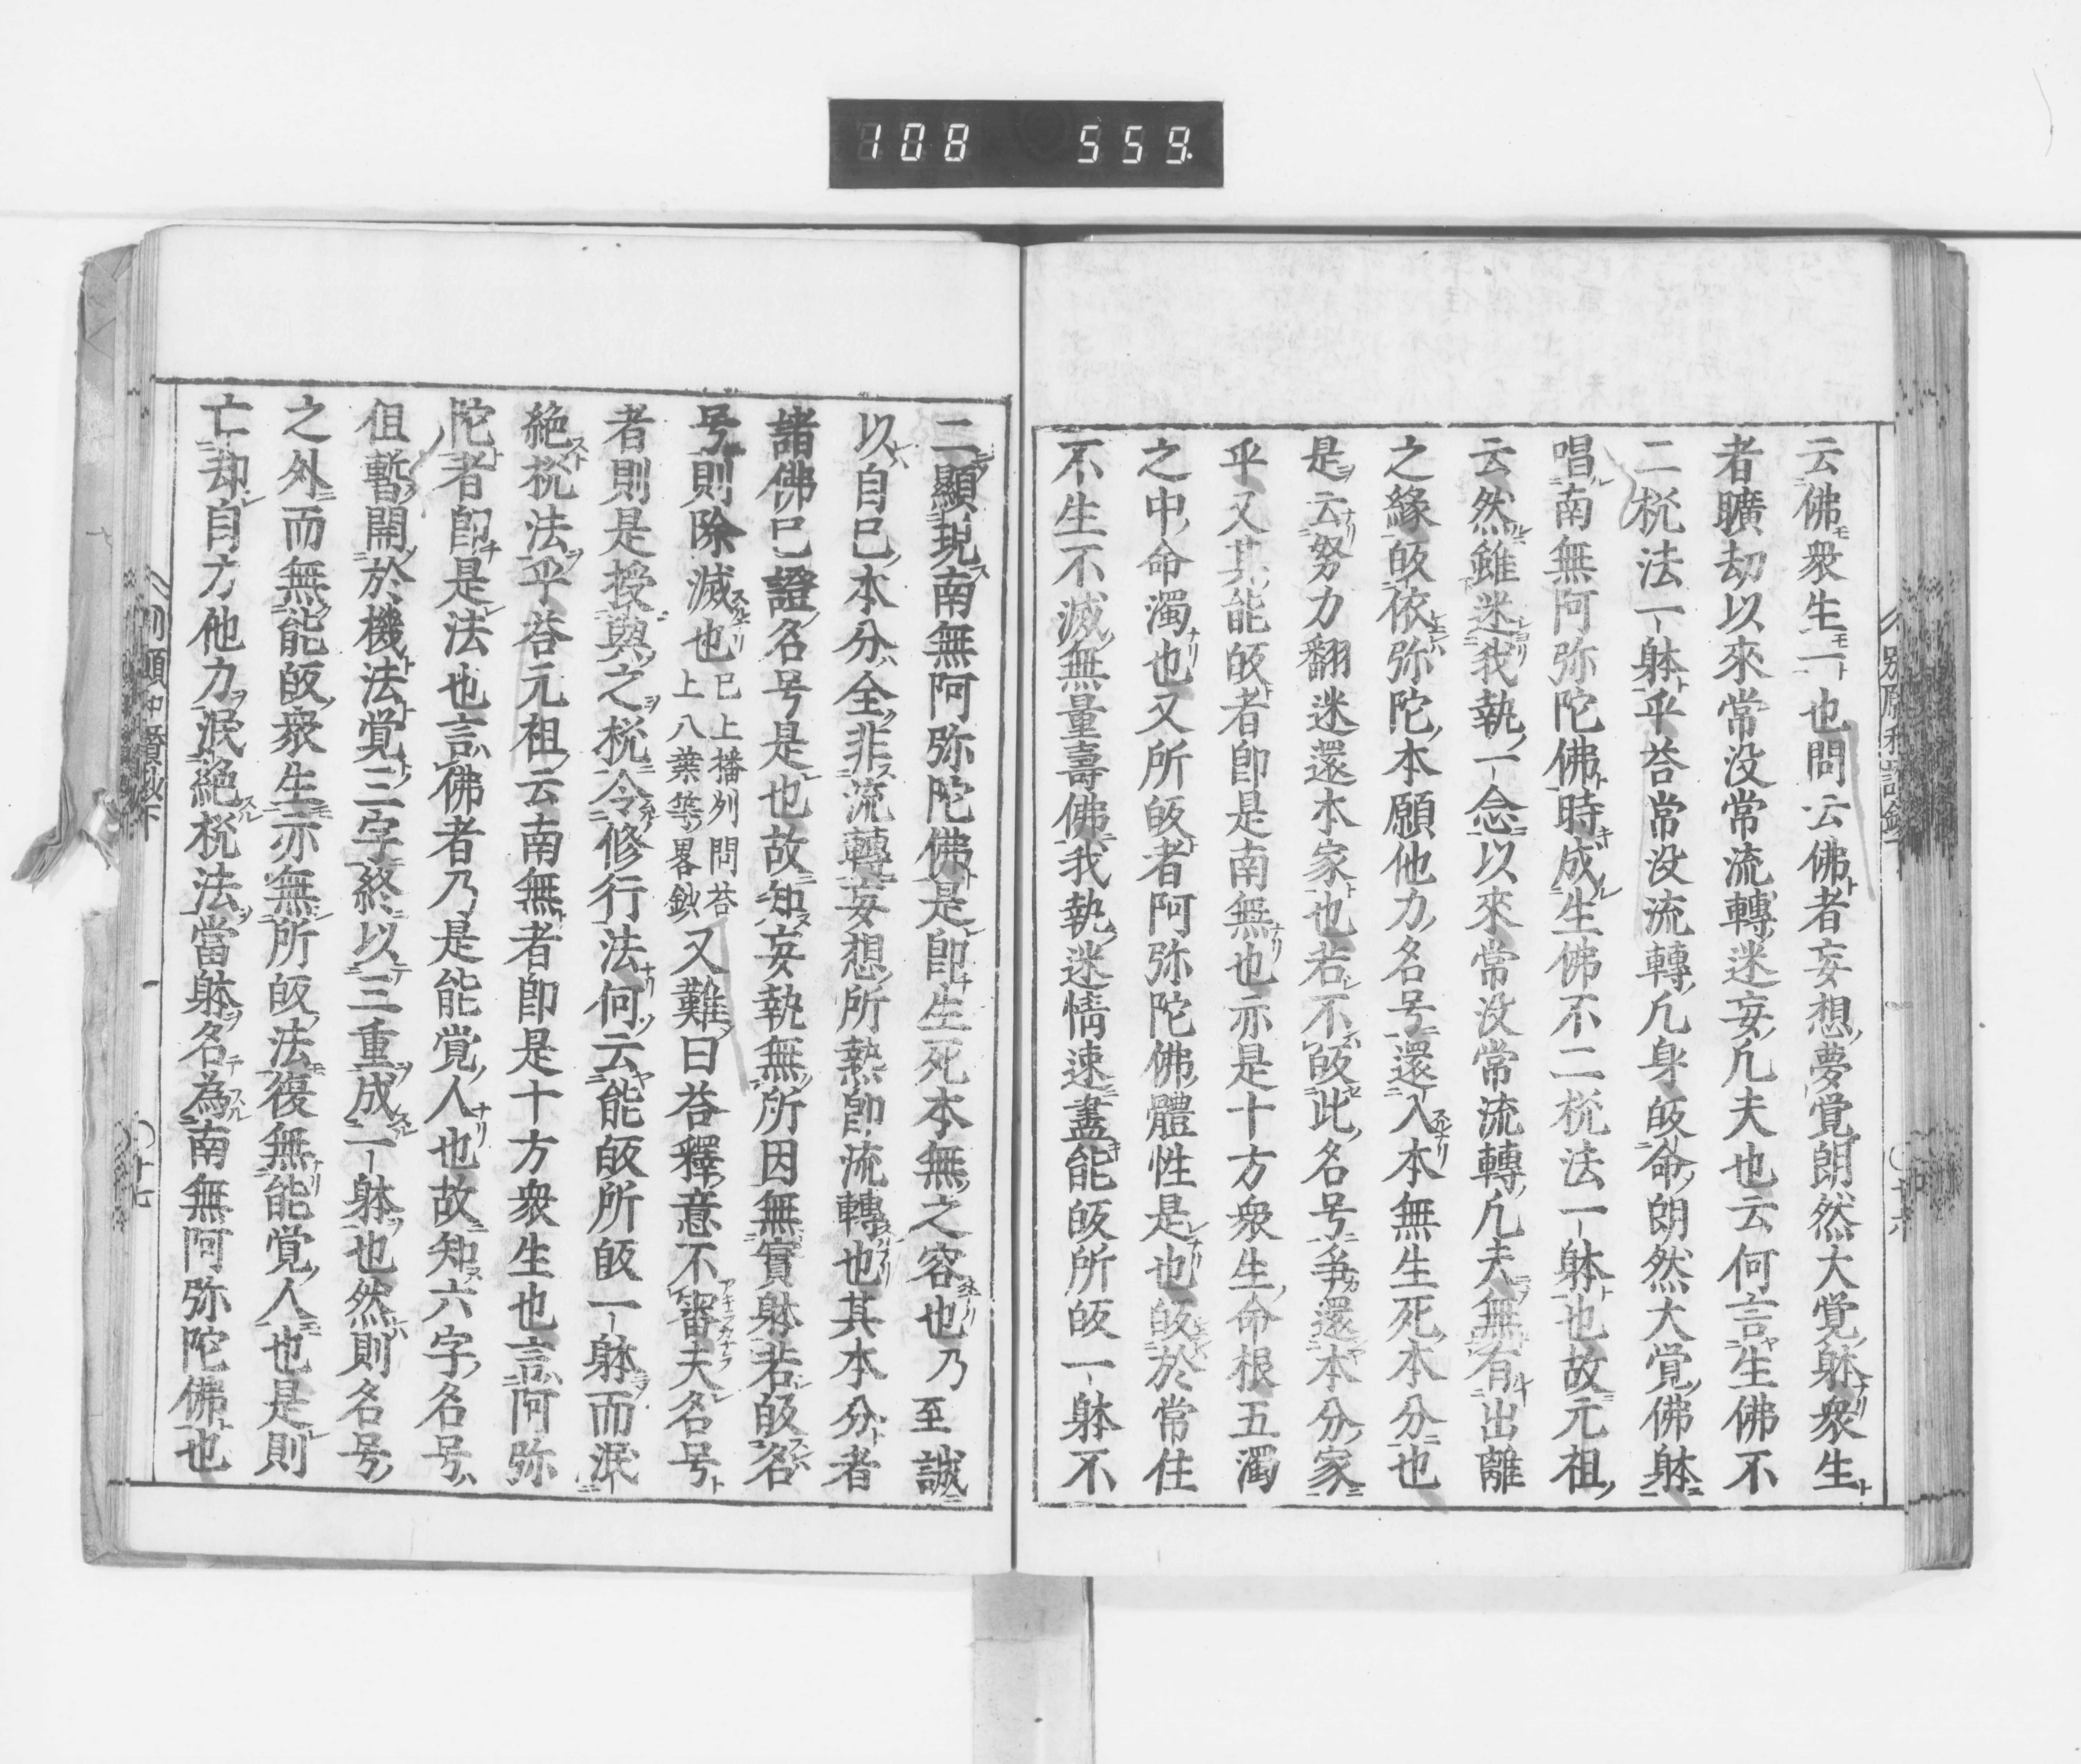 108 559.
云佛衆生一也問云佛者妄想夢覚朗然大覚躰衆生
者曠劫以來常没常流轉迷妄凡夫也云何言生佛不
二機法一躰乎荅常没流轉凡身皈命朗然大覚佛躰
唱南無阿弥陀佛時成生佛不二機法一躰也故元祖
云然雖迷我執一念以來常没常流轉凡夫無有出離
之緣皈依弥陀本願他力名号還入本無生死本分也
是云努力翻迷還本家也若不皈此名号爭還本分家
乎又其能皈者即是南無也亦是十方衆生命根五濁
之中命濁也又所皈者阿弥陀佛體性是也皈於常住
不生不滅無量壽佛我執迷情速盡能皈所皈一躰不
二顯現南無阿弥陀佛是即生死本無之容也乃至誠
以自己本分全非流轉妄想所熱即流轉也其本分者
諸佛已證名号是也故知妄執無所因無實躰若皈名
号則除滅也已上播列問荅上八葉等畧鈔又難曰荅釋意不審夫名号
者則是授與之機令修行法何云能皈所皈一躰而泯
絶機法乎荅元祖云南無者即是十方衆生也言阿弥
陀者即是法也言佛者乃是能覚人也故知六字名号
但暫開於機法覚三字終以三重成一躰也然則名号
之外而無能皈衆生亦無所皈法復無能覚人也是則
亡却自力他力泯絶機法當躰名為南無阿弥陀佛也
十七